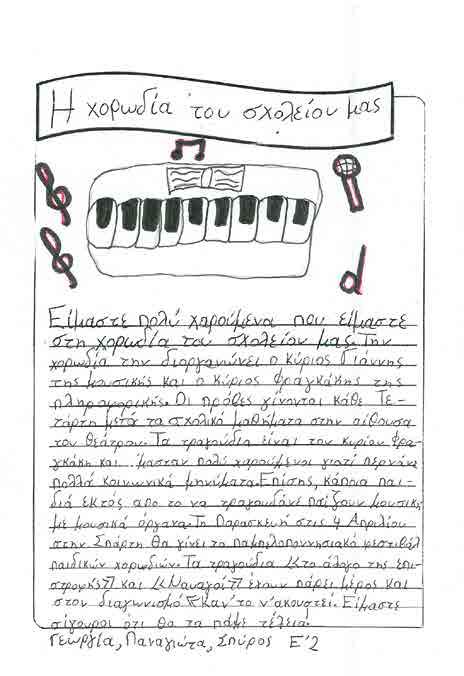 Η χορωδία του σχολείου μας
Είμαστε πολύ χαρούμενα που είμαστε
στη χορωδία του σχολείου μας. Την
χορωδία την διοργανώνει ο κύριος Γιάννης
της μουσικής και ο κύριος Φραγκάκης της
πληροφορικής. Οι πρόβες γίνονται κάθε Τε-
τάρτη μετά τα σχολικά μαθήματα στην αίθουσα
του θεάτρου. Τα τραγούδια είναι του κυρίου Φρα-
γκάκη και πολύ χαρούμενοι γιατί περνάνε
πολλά κοινωνικά μηνύματα. Επίσης, κάποια παι-
διά εκτός απο το να τραγουδάνε παίζουν μουσική
με μουσικά όργανα. Τη Παρασκευή στις 4 Απριλίου
στην Σπάρτη θα γίνει το παμπελοποννησιακό φεστιβάλ
παιδικών χορωδιών. Τα τραγούδια <<το άλογο της επι-
στροφής>> και <<Ναυαγοί>> έχουν πάρει μέρος και
στον διαγωνισμό <<Καν'το ν'ακουστεί. Είμαστε
σίγουροι ότι θα τα πάμε τέλεια.
Γεωργία, Παναγιώτα, Σπύρος Ε'2